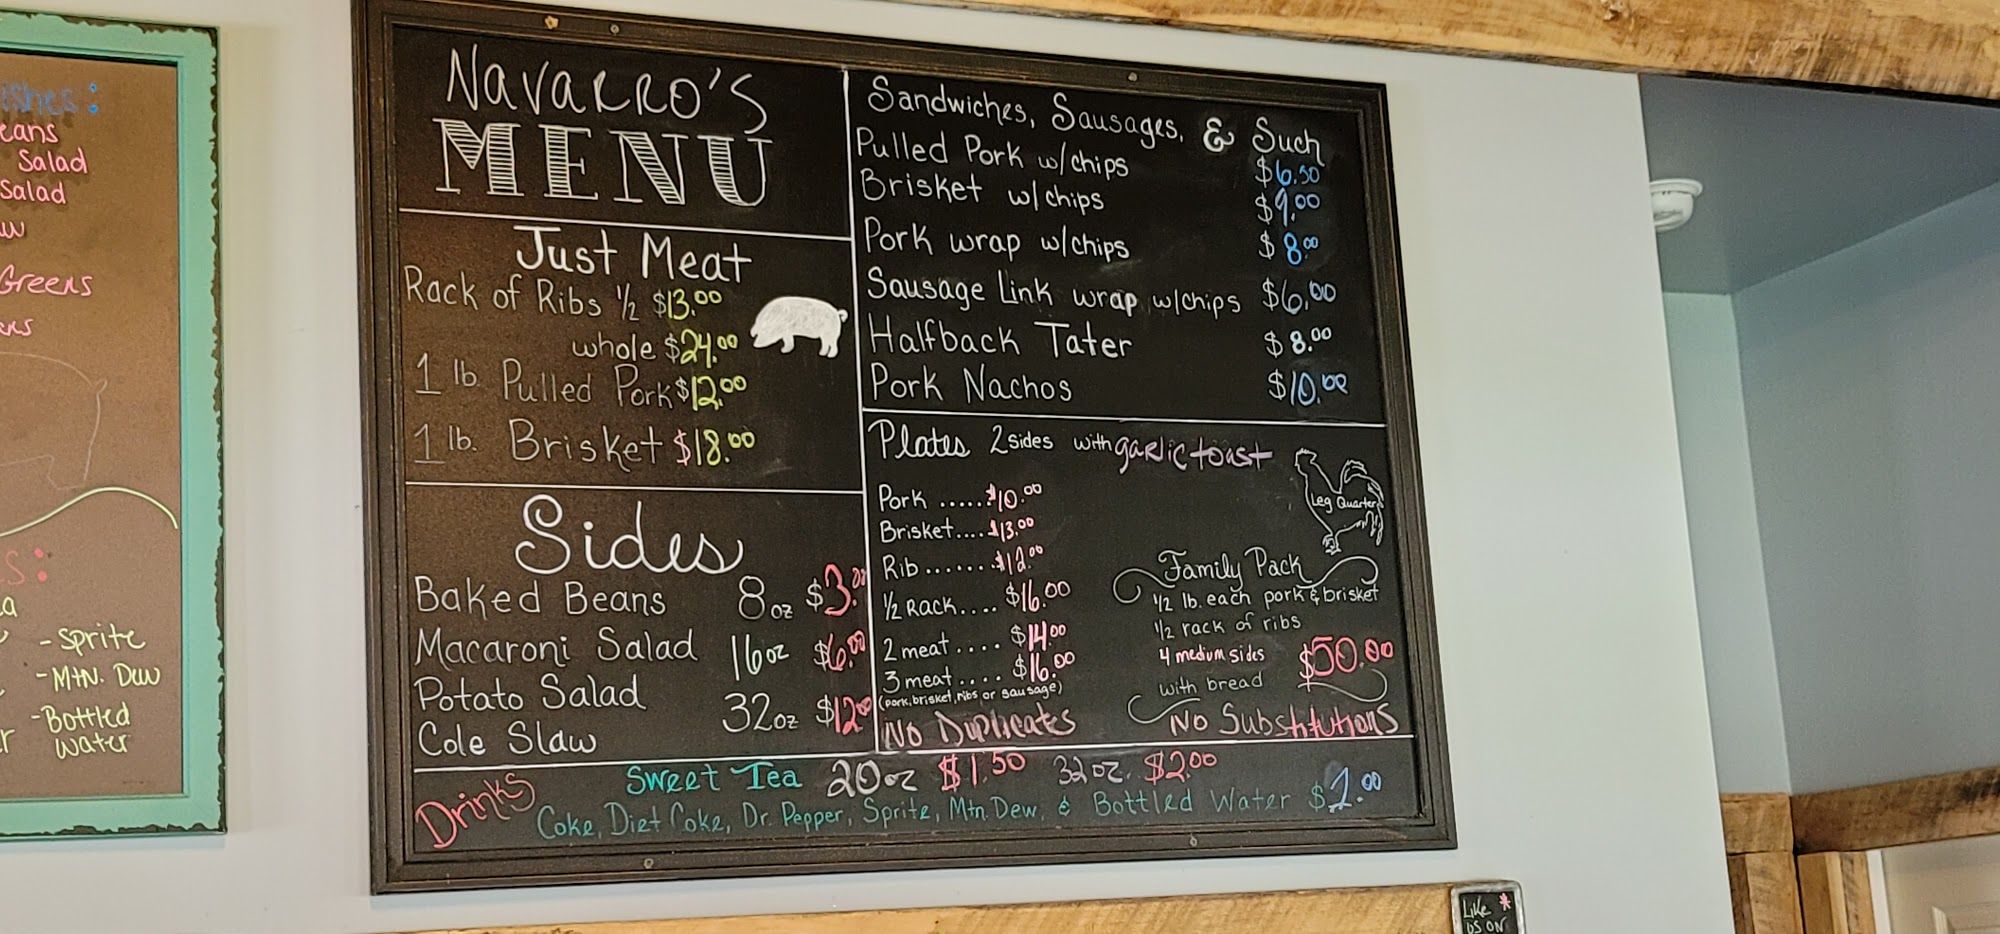 eans
Salad
Salad
Greens
- Sprite
- Mtn. Dew
- Bottled
Water
Navarro's
MENU
Just Meat
Rack of Ribs ½ $13.00
whole $24.00
1 lb. Pulled Pork $12.00
1 lb. Brisket $18.00
Sides
Baked Beans 8oz $3.00
Macaroni Salad 16oz $6.00
Potato Salad 32oz $12.00
Cole Slaw
Sandwiches, Sausages, & Such
Pulled Pork w/chips $6.50
Brisket w/chips $9.00
Pork wrap w/chips $8.00
Sausage Link wrap w/chips $6.00
Halfback Tater $8.00
Pork Nachos $10.00
Plates 2 sides with garlic toast
Pork ...... $10.00
Brisket .... $13.00
Rib ....... $12.00
½ Rack .... $16.00
2 meat .... $14.00
3 meat .... $16.00
(pork, brisket, ribs or sausage)
No Duplicates
Leg Quarter
Family Pack
½ lb. each pork & brisket
½ rack of ribs
4 medium sides $50.00
with bread
No Substitutions
Drinks
Sweet Tea 20oz $1.50 32oz. $2.00
Coke, Diet Coke, Dr. Pepper, Sprite, Mtn. Dew, & Bottled Water $1.00
Like
us on